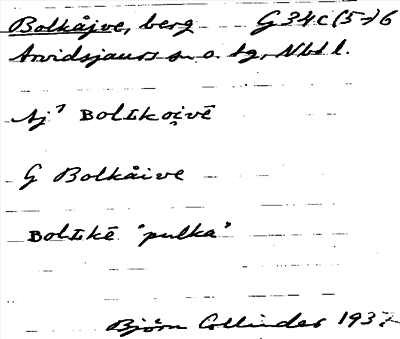 Bolkåjve, berg G34c(5-)6
Arvidsjaurs sn o. tg, Nbtl.
Aj⁷ BolIkọivē
G Bolkåive
BolIkē "pulka"
Björn Collinder 1937